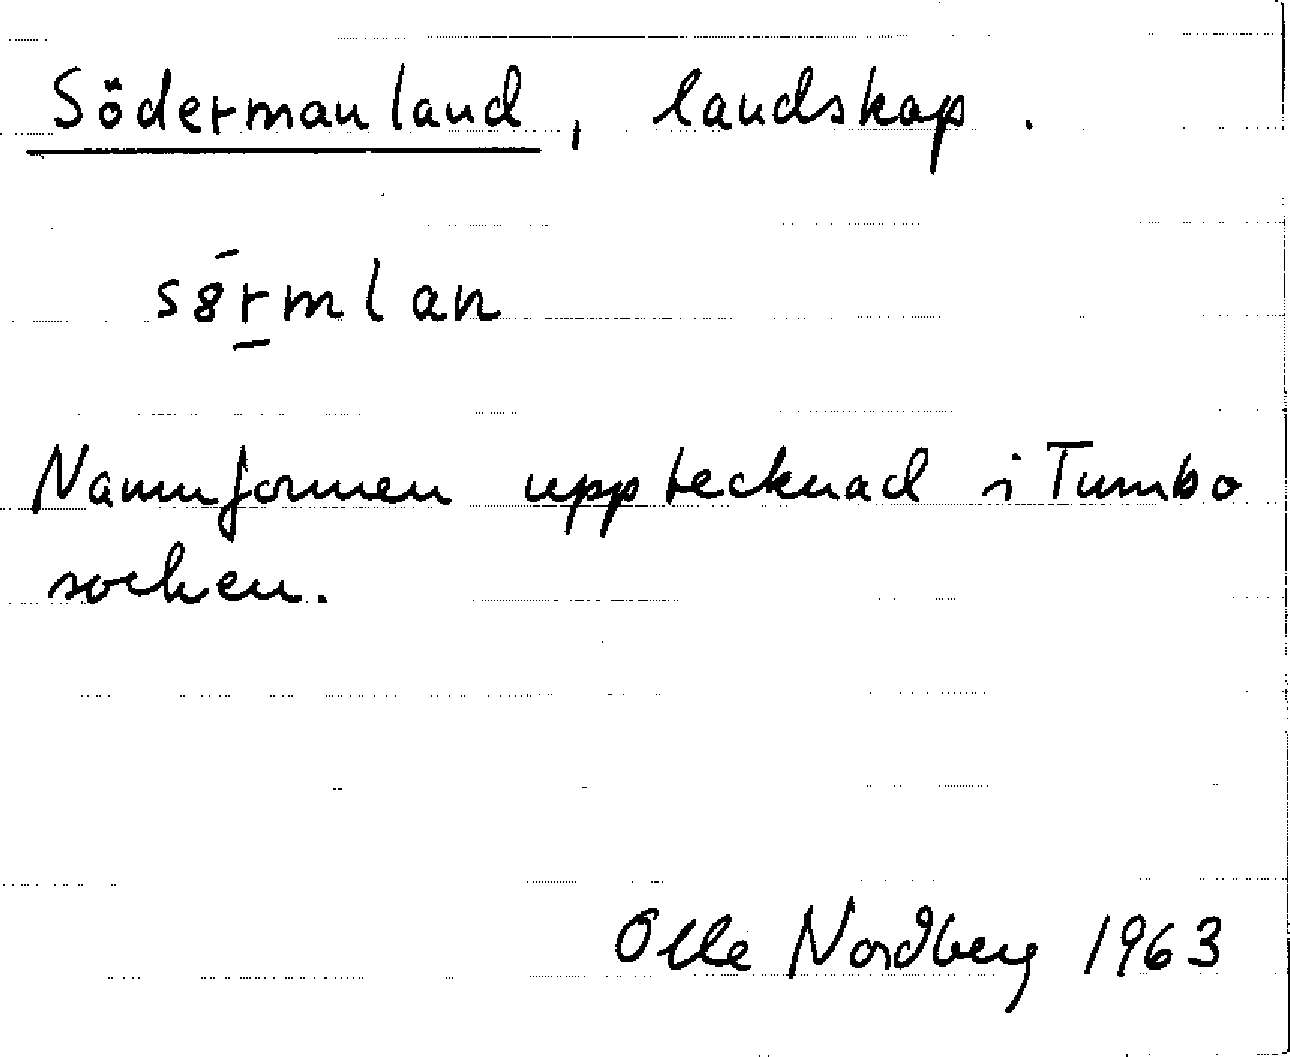 Södermanland, landskap.
sö́r̲mlan
Namnformen upptecknad i Tumbo
socken.
Olle Nordberg 1963